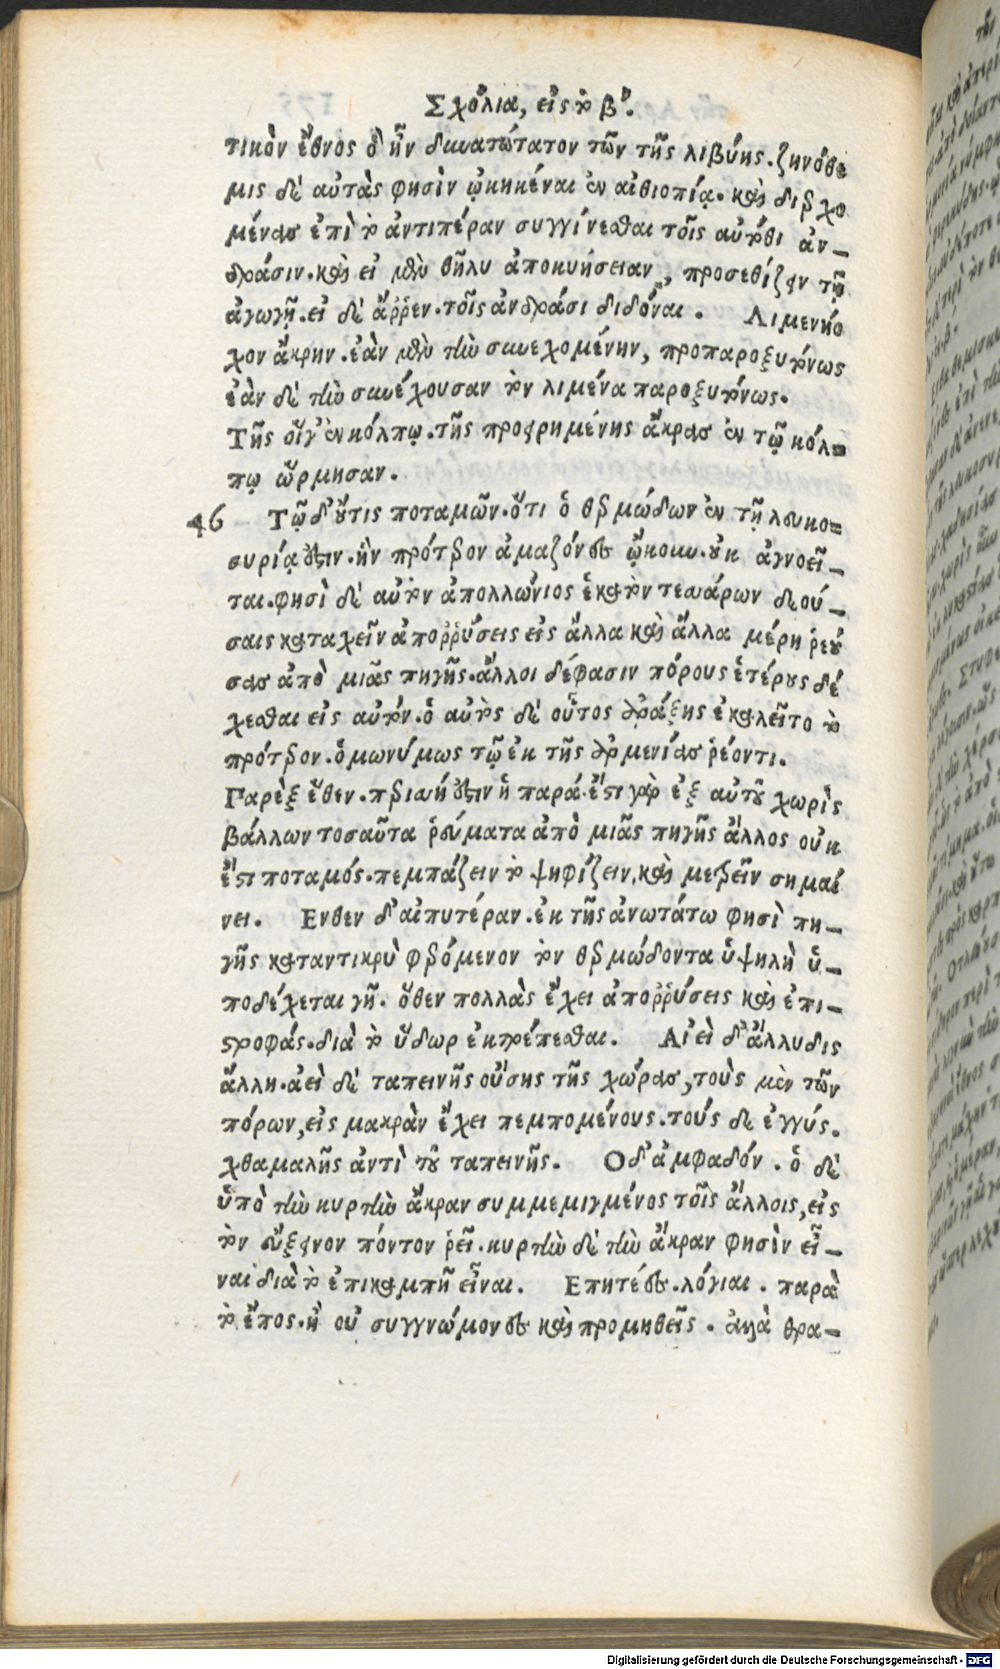 Σχόλια, εἰς τὸ βʹ.
τικὸν ἔθνος ὃ ἦν δυνατώτατον τῶν τῆς λιβύης. ζηνόθε
μις δὲ αὐτὰς φησὶν ᾠκηκέναι ἐν αἰθιοπίᾳ. καὶ διερχο
μένας ἐπὶ τὸ ἀντιπέραν συγγίνεσθαι τοῖς αὐτόθι ἀν-
δράσιν. καὶ εἰ μὲν θῆλυ ἀποκυήσειαν, προσεθίζειν τῇ
ἀγωγῇ. εἰ δὲ ἄῤῥεν. τοῖς ἀνδράσι διδόναι. Λιμενήο
χον ἄκρην. ἐὰν μὲν τὴν συνεχομένην, προπαροξυτόνως
ἐὰν δὲ τὴν συνέχουσαν τὸν λιμένα παροξυτόνως.
Τῆς οἵγ' ἐν κόλπῳ. τῆς προειρημένης ἄκρας ἐν τῷ κόλ-
πῳ ὥρμησαν.
46 Τῷ δ' οὔτις ποταμῶν. ὅτι ὁ θερμώδων ἐν τῇ λευκο-
συρίᾳ ἐστιν. ἣν πρότερον ἀμαζόνες ᾤκουν. οὐκ ἀγνοεῖ-
ται. φησὶ δὲ αὐτὸν ἀπολλώνιος ἑκατὸν τεσσάρων δεού-
σαις καταχεῖν ἀποῤῥύσεις εἰς ἄλλα καὶ ἄλλα μέρη ῥεού
σας ἀπὸ μιᾶς πηγῆς. ἄλλοι δέ φασιν πόρους ἑτέρους δέ
χεσθαι εἰς αὐτόν. ὁ αὐτὸς δὲ οὗτος ἀράξης ἐκαλεῖτο τὸ
πρότερον. ὁμωνύμως τῷ ἐκ τῆς ἀρμενίας ῥέοντι.
Παρὲξ ἕθεν. περισσή ἐστιν ἡ παρά. ἔστι γὰρ ἐξ αὐτοῦ χωρὶς
βάλλων τοσαῦτα ῥεύματα ἀπὸ μιᾶς πηγῆς ἄλλος οὐκ
ἔστι ποταμός. πεμπάζειν τὸ ψηφίζειν, καὶ μετρεῖν σημαί
νει. Ενθεν δ' αἰπυτέραν. ἐκ τῆς ἀνωτάτω φησὶ πη-
γῆς καταντικρὺ φερόμενον τὸν θερμώδοντα ὑψηλὴ ὑ-
ποδέχεται γῆ. ὅθεν πολλὰς ἔχει ἀποῤῥύσεις καὶ ἐπι-
στροφάς. διὰ τὸ ὕδωρ ἐκτρέπεσθαι. Αἰεὶ δ' ἄλλυδις
ἄλλη. ἀεὶ δὲ ταπεινῆς οὔσης τῆς χώρας, τοὺς μὲν τῶν
πόρων, εἰς μακρὰν ἔχει πεμπομένους. τούς δε ἐγγύς.
χθαμαλῆς ἀντὶ τοῦ ταπεινῆς. Οδ' ἀμφαδόν. ὁ δὲ
ὑπὸ τὴν κυρτὴν ἄκραν συμμεμιγμένος τοῖς ἄλλοις, εἰς
τὸν εὔξεινον πόντον ῥεῖ. κυρτὴν δὲ τὴν ἄκραν φησὶν εἶ-
ναι διὰ τὸ ἐπικαμπῆ εἶναι. Επητέες. λόγιαι. παρὰ
τὸ ἔπος. ἢ οὐ συγγνώμονες καὶ προμηθεῖς. ἀλλὰ θρα-
Digitalisierung gefördert durch die Deutsche Forschungsgemeinschaft - DFG